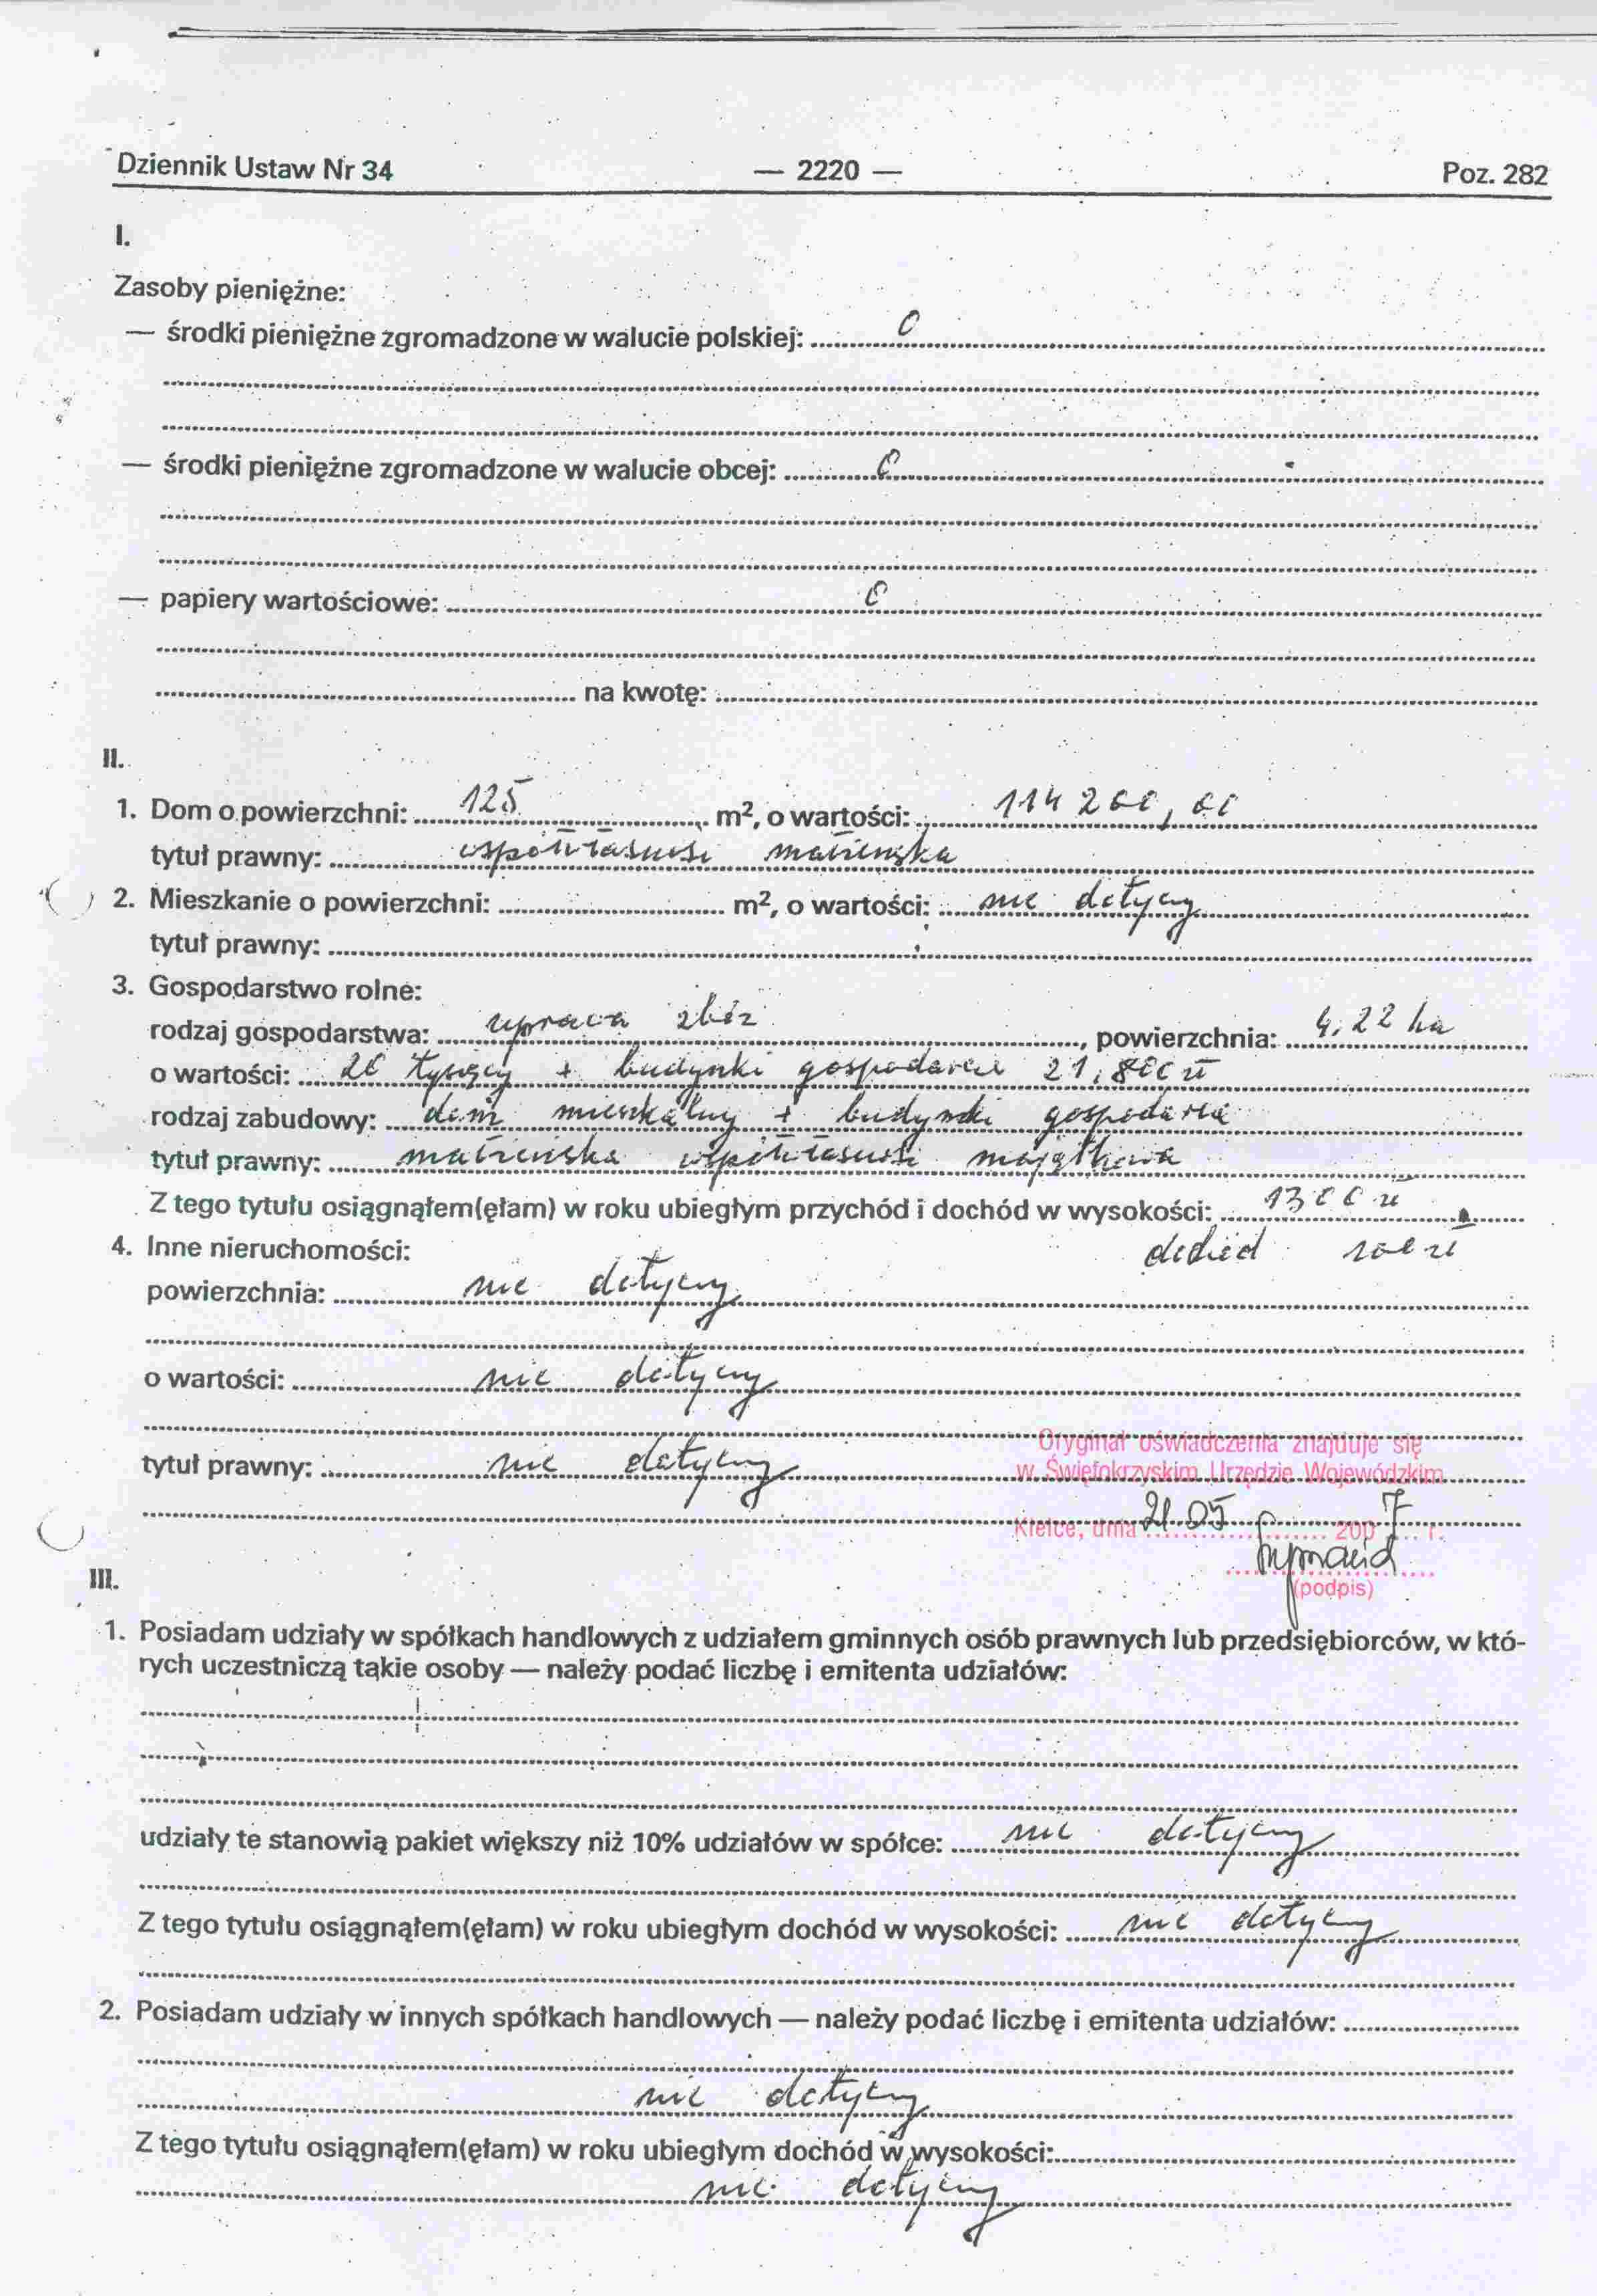 Dziennik Ustaw Nr 34 — 2220 — Poz. 282
I.
Zasoby pieniężne:
— środki pieniężne zgromadzone w walucie polskiej: 0
— środki pieniężne zgromadzone w walucie obcej: 0
— papiery wartościowe: 0
na kwotę:
II.
1. Dom o powierzchni: 125 m², o wartości: 114 200,00
tytuł prawny: współwłasność małżeńska
2. Mieszkanie o powierzchni: m², o wartości: nie dotyczy
tytuł prawny:
3. Gospodarstwo rolne:
rodzaj gospodarstwa: uprawa zbóż, powierzchnia: 4,22 ha
o wartości: 20 tysięcy + budynki gospodarcze 21,800 zł
rodzaj zabudowy: dom mieszkalny + budynki gospodarcze
tytuł prawny: małżeńska współwłasność majątkowa
Z tego tytułu osiągnąłem(ęłam) w roku ubiegłym przychód i dochód w wysokości: 1300 zł
dochód zł
4. Inne nieruchomości:
powierzchnia: nie dotyczy
o wartości: nie dotyczy
Oryginał oświadczenia znajduje się
tytuł prawny: nie dotyczy
w Świętokrzyskim Urzędzie Wojewódzkim
Kielce, dnia 21.05 2007 r.
(podpis)
III.
1. Posiadam udziały w spółkach handlowych z udziałem gminnych osób prawnych lub przedsiębiorców, w któ-
rych uczestniczą takie osoby — należy podać liczbę i emitenta udziałów:
udziały te stanowią pakiet większy niż 10% udziałów w spółce: nie dotyczy
Z tego tytułu osiągnąłem(ęłam) w roku ubiegłym dochód w wysokości: nie dotyczy
2. Posiadam udziały w innych spółkach handlowych — należy podać liczbę i emitenta udziałów:
nie dotyczy
Z tego tytułu osiągnąłem(ęłam) w roku ubiegłym dochód w wysokości:
nie dotyczy